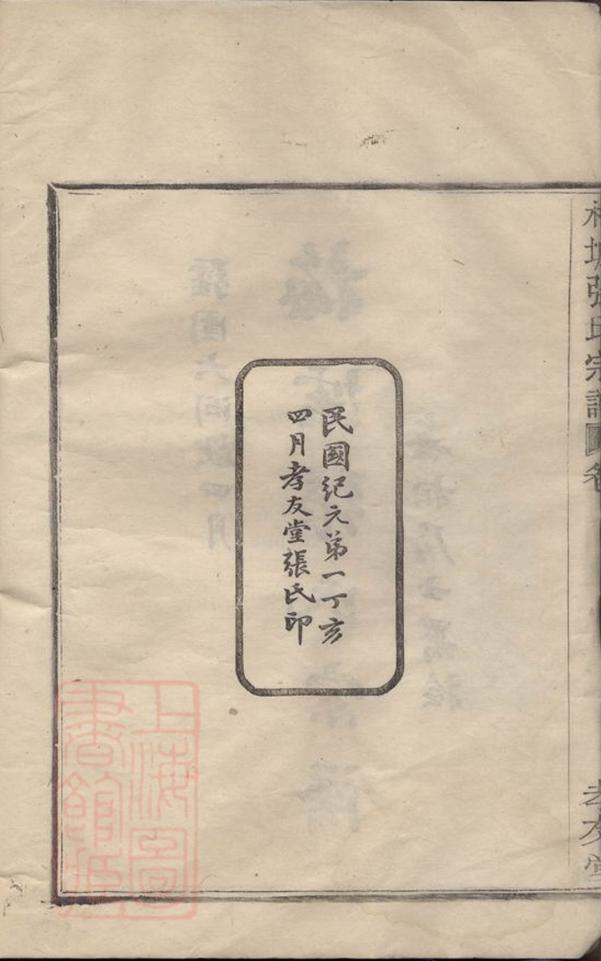 張氏宗譜
卷
孝友堂
民國紀元第一丁亥
四月孝友堂張氏印
上海圖
書館